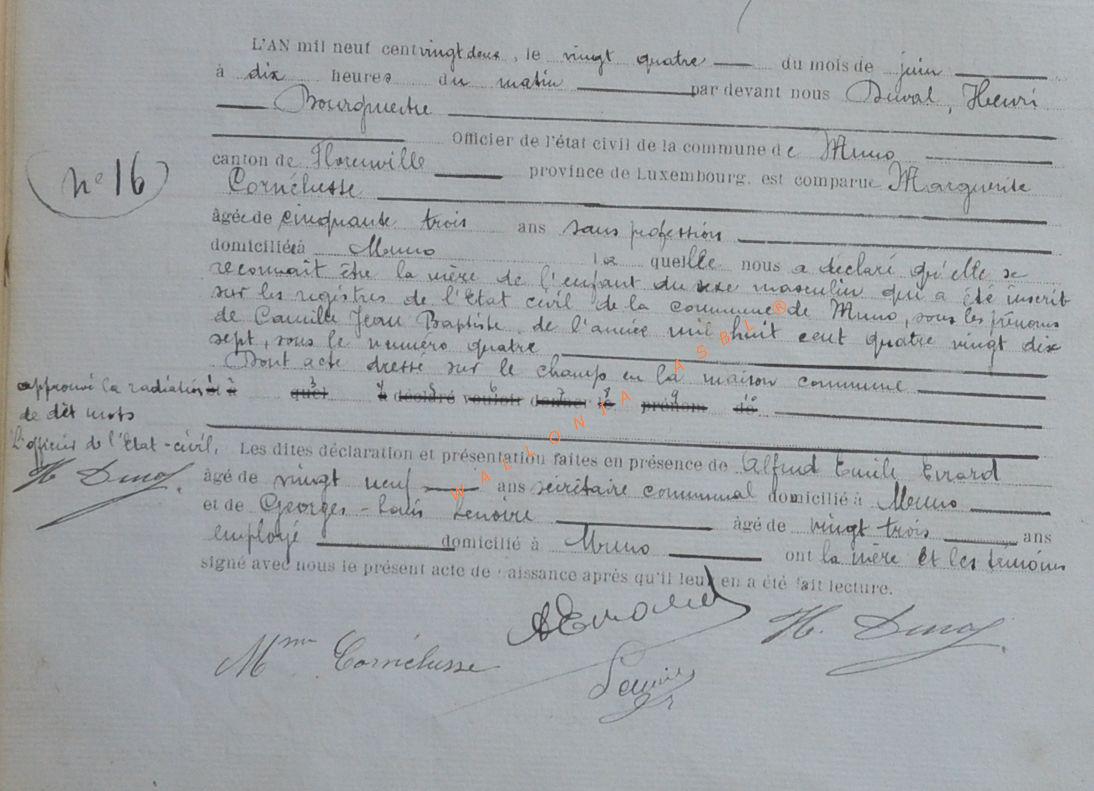 L'AN mil neuf cent vingt deux, le vingt quatre du mois de juin
à dix heures du matin par devant nous Duval, Henri
Bourgmestre
Officier de l'état civil de la commune de Muno
n° 16
canton de Florenville province de Luxembourg, est comparue Marguerite
Cornélusse
âgée de cinquante trois ans sans profession
domiciliée à Muno laquelle nous a déclaré qu'elle se
reconnait être la mère de l'enfant du sexe masculin qui a été inscrit
sur les registres de l'Etat civil de la commune de Muno, sous les prénoms
de Camille Jean Baptiste, de l'année mil huit cent quatre vingt dix
sept, sous le numéro quatre
Dont acte dressé sur le champ en la maison commune
approuvé la radiation à quel déclaré vouloir donner le prénom de
de dix mots
L'officier de l'Etat-civil,
Les dites déclaration et présentation faites en présence de Alfred Emile Evrard
H. Duval
âgé de vingt neuf ans secrétaire communal domicilié à Muno
et de Georges-Louis Lenoire âgé de vingt trois ans
employé domicilié à Muno ont la mère et les témoins
signé avec nous le présent acte de naissance après qu'il leur en a été fait lecture.
AEvrard
H. Duval
Mme Cornélusse
WAELONKA ASBL ®